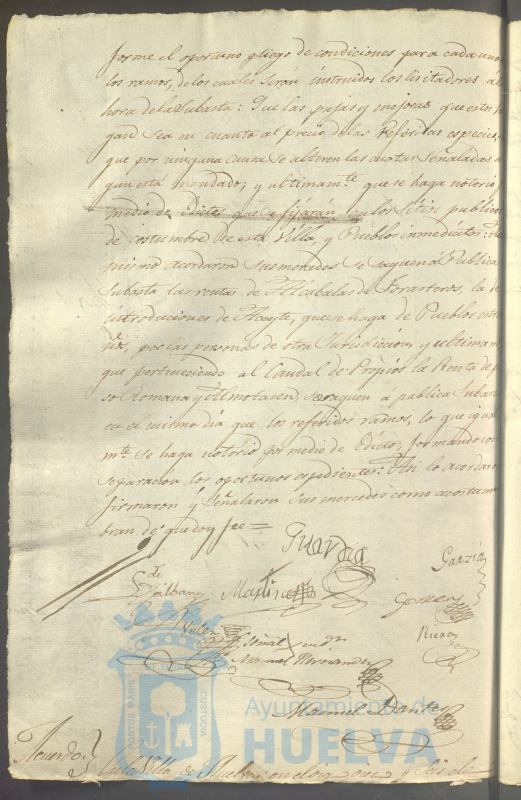 forme el oportuno pliego de condiciones para cada uno
los ramos, de los cuales seran instruidos los licitadores al
hora de la Subasta: Que las pujas y mejoras que estos
gan sea en cuanto al precio de las referidas especies,
que por ninguna causa se alteren las cuotas señaladas
gun está mandado; y ultimamte. que se haga notorio
medio de Edictos que se fijarán en los Sitios publicos
de costumbre de esta Villa, y Pueblos inmediatos:
mismo acordaron sus mercedes se saquen á Publica
Subasta las rentas de Alcabalas de Forasteros, la de
introducciones de Aceyte, que se haga de Pueblos estra
ños, por las personas de otra Jurisdiccion, y ultimam
que perteneciendo al Caudal de Propios la Renta de pe
so Romana y Almotasen, se saquen á publica Subasta
en el mismo dia que los referidos ramos, lo que igual
mte. se haga notorio por medio de Edictos, formando con
separacion los oportunos espedientes: Asi lo acordaron
firmaron y señalaron sus mercedes como acostum
bran de que doy fee =
Guardia
Garzia
Martinez
Gomez
Velez
Señal
Rivera
Manuel Hernandez
Manuel Dante
PORTUS MARIS
CUSTODIA
Ayuntamiento de
HUELVA
Acuerdo
En la Villa de Huelva en el dia once y Seis de